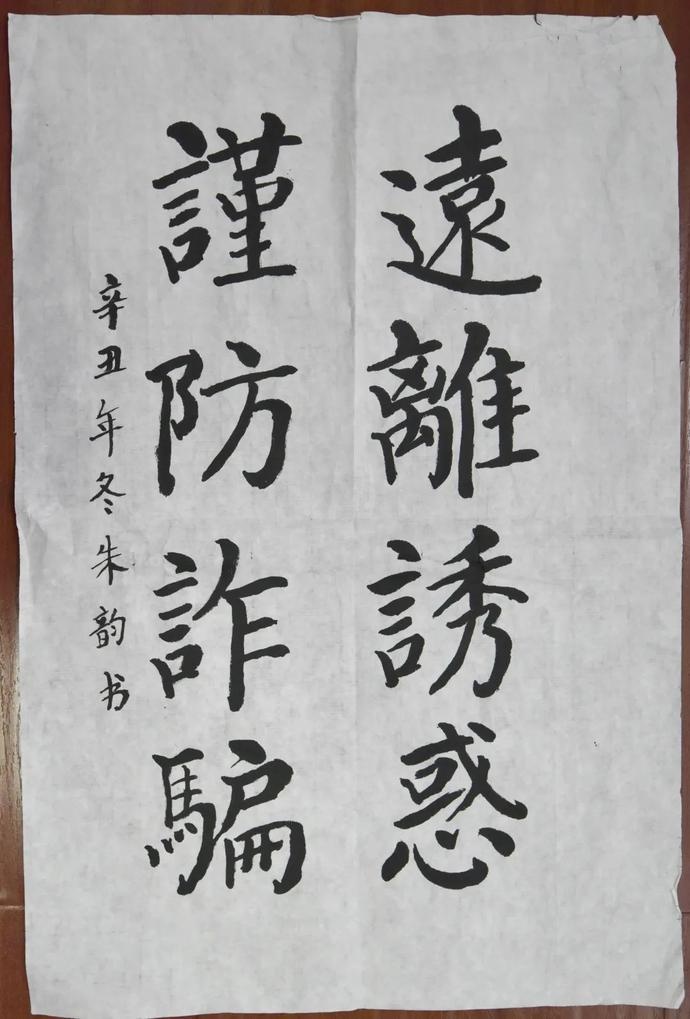 遠離誘惑
謹防詐騙
辛丑年冬朱韵书